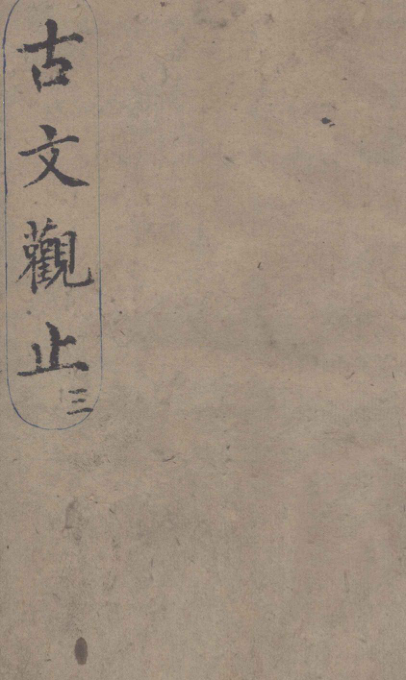 古文觀止三